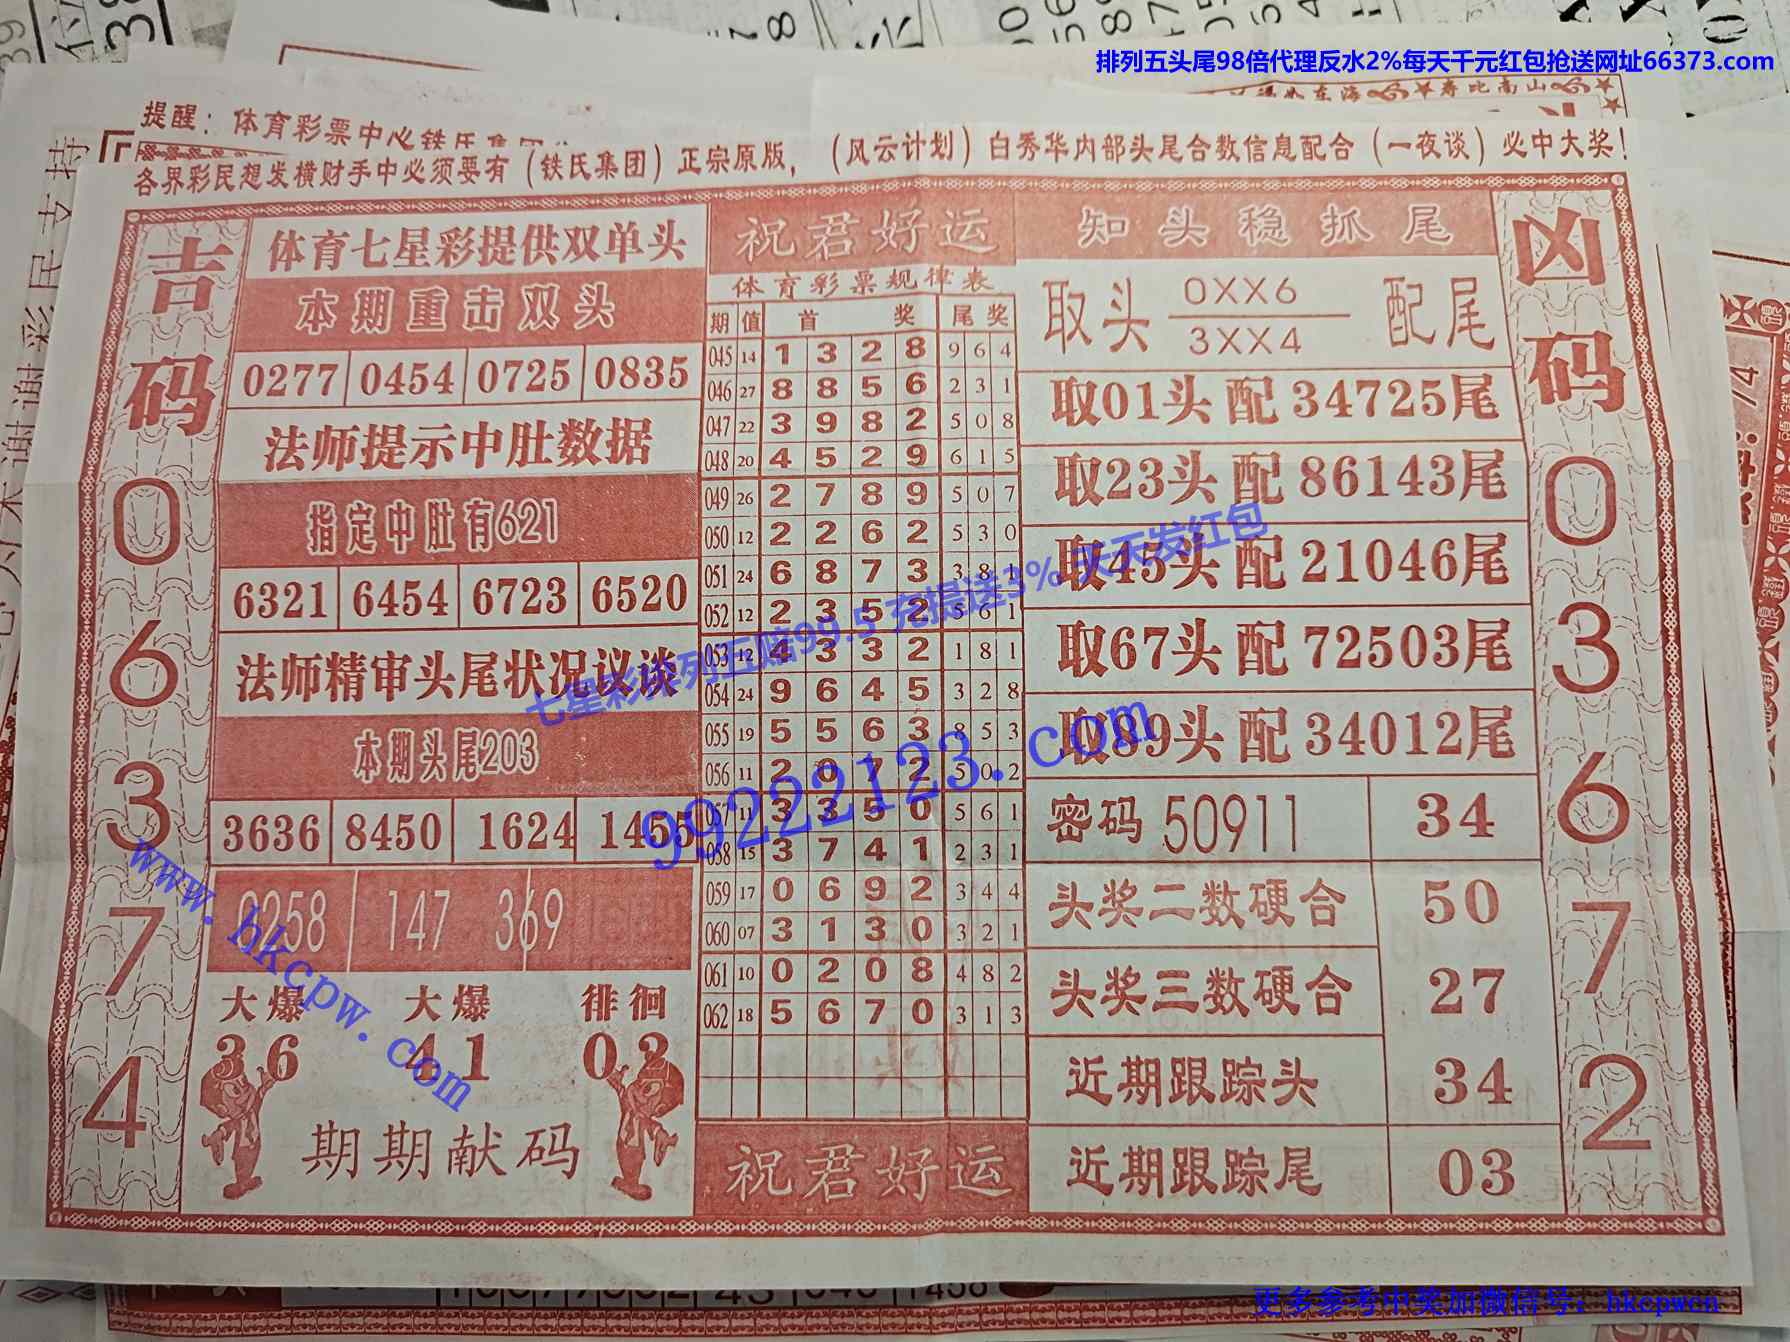 排列五头尾98倍代理反水2%每天千元红包抢送网址66373.com
寿比南山
提醒：体育彩票中心铁氏集团
各界彩民想发横财手中必须要有（铁氏集团）正宗原版，（风云计划）白秀华内部头尾合数信息配合（一夜谈）必中大奖！
吉码
0
6
3
7
4
体育七星彩提供双单头
本期重击双头
0277 0454 0725 0835
法师提示中肚数据
指定中肚有621
6321 6454 6723 6520
法师精审头尾状况议谈
本期头尾203
3636 8450 1624 1455
0258 147 369
大爆 大爆 徘徊
36 41 02
期期献码
祝君好运
体育彩票规律表
期 值 首 奖 尾 奖
045 14 1 3 2 8 9 6 4
046 27 8 8 5 6 2 3 1
047 22 3 9 8 2 5 0 8
048 20 4 5 2 9 6 1 5
049 26 2 7 8 9 5 0 7
050 12 2 2 6 2 5 3 0
051 24 6 8 7 3 3 8 1
052 12 2 3 5 2 5 6 1
053 12 4 3 3 2 1 8 1
054 24 9 6 4 5 3 2 8
055 19 5 5 6 3 8 5 3
056 11 2 0 7 2 5 0 2
057 11 3 3 5 0 5 6 1
058 15 3 7 4 1 2 3 1
059 17 0 6 9 2 3 4 4
060 07 3 1 3 0 3 2 1
061 10 0 2 0 8 4 8 2
062 18 5 6 7 0 3 1 3
祝君好运
知头稳抓尾
取头 0XX6 配尾
3XX4
取01头 配 34725尾
取23头 配 86143尾
取45头 配 21046尾
取67头 配 72503尾
取89头 配 34012尾
密码 50911 34
头奖二数硬合 50
头奖三数硬合 27
近期跟踪头 34
近期跟踪尾 03
凶码
0
3
6
7
2
七星彩排列五赔99.5 充提送3% 天天发红包
99222123.com
www.hkcpw.com
更多参考中奖加微信号：hkcpwcn